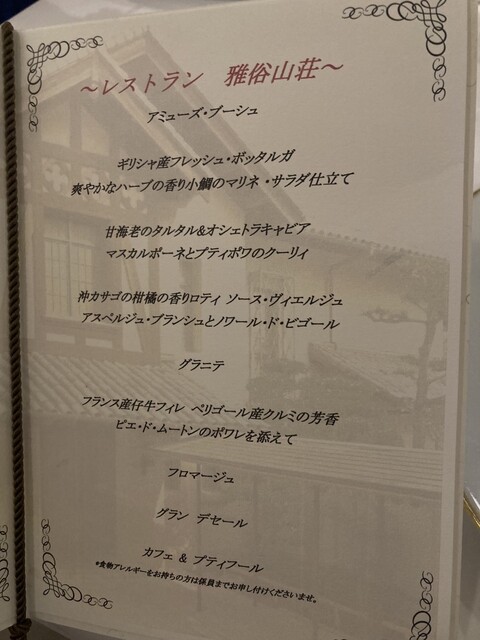 ～レストラン　雅俗山荘～
アミューズ・ブーシュ
ギリシャ産フレッシュ・ボッタルガ
爽やかなハーブの香り小鯛のマリネ ・サラダ仕立て
甘海老のタルタル&オシェトラキャビア
マスカルポーネとプティポワのクーリィ
沖カサゴの柑橘の香りロティ ソース・ヴィエルジュ
アスペルジュ・ブランシュとノワール・ド・ビゴール
グラニテ
フランス産仔牛フィレ ペリゴール産クルミの芳香
ピエ・ド・ムートンのポワレを添えて
フロマージュ
グラン デセール
カフェ & プティフール
*食物アレルギーをお持ちの方は係員までお申し付けくださいませ。